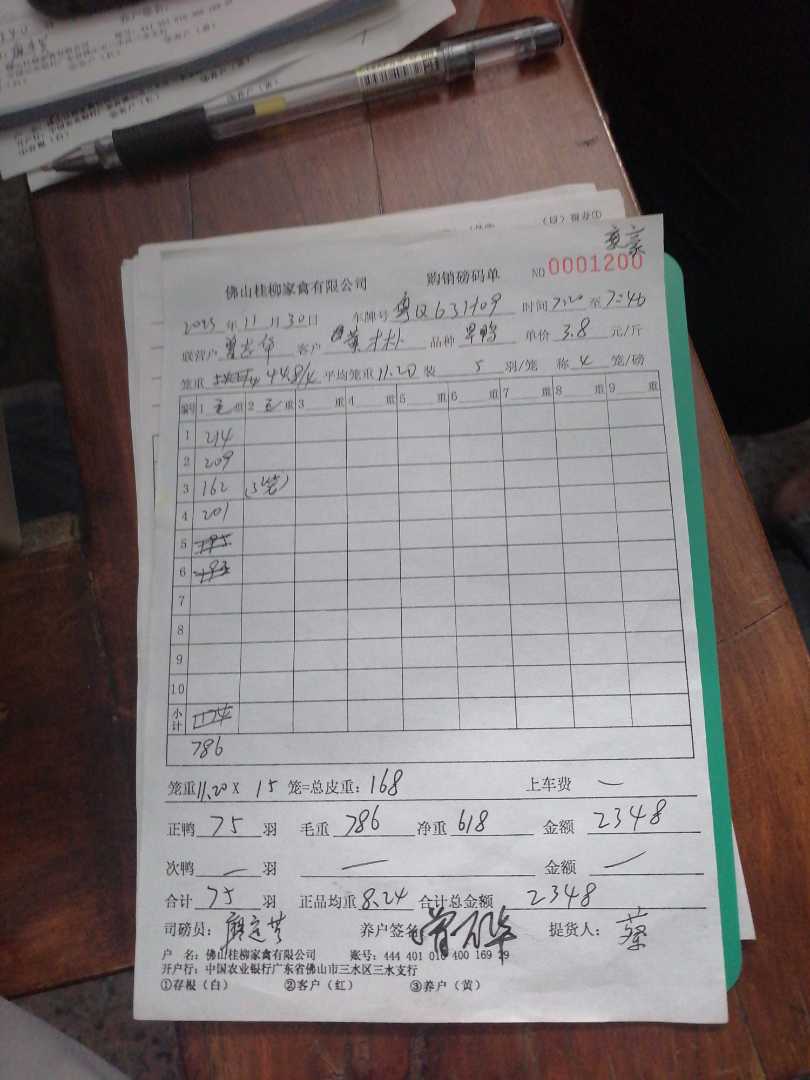 佛山桂柳家禽有限公司 购销磅码单 NO 0001200
2023 年 11 月 30 日 车牌号 粤Q63709 时间 7:20 至 7:46
联营户 客户 品种 旱鸭 单价 3.8 元/斤
笼重 44.8/4 平均笼重 11.20 装 5 羽/笼 称 4 笼/磅
编号 1 毛 重 2 毛 重 3 重 4 重 5 重 6 重 7 重 8 重 9 重
1 214
2 209
3 162 (3笼)
4 201
5 195
6 193
7
8
9
10
小计 1174
786
笼重 11.20 × 15 笼=总皮重: 168 上车费 —
正鸭 75 羽 毛重 786 净重 618 金额 2348
次鸭 — 羽 — 金额 —
合计 75 羽 正品均重 8.24 合计总金额 2348
司磅员: 养户签名 提货人: 蔡
户 名: 佛山桂柳家禽有限公司 账号: 444 401 010 400 169 29
开户行: 中国农业银行广东省佛山市三水区三水支行
①存根（白） ②客户（红） ③养户（黄）